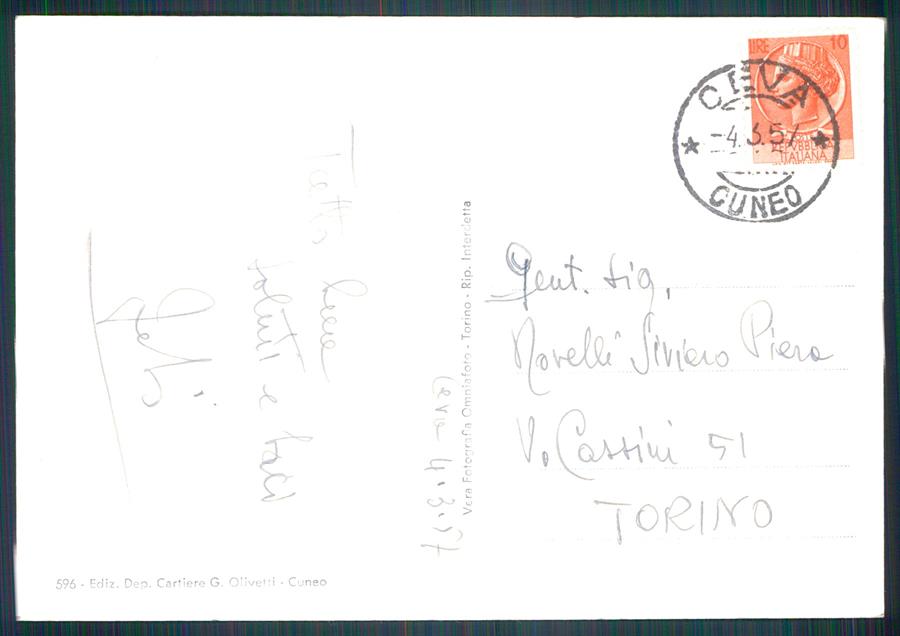 LIRE 10
REPVBBLICA
ITALIANA
CEVA
-4.3.57
CUNEO
Ceva 4.3.57
Tutto bene
saluti e baci
Vera Fotografia Omniafoto - Torino - Rip. Interdetta
Gent. Sig.
Novelli Siviero Piera
V. Cassini 51
TORINO
596 - Ediz. Dep. Cartiere G. Olivetti - Cuneo